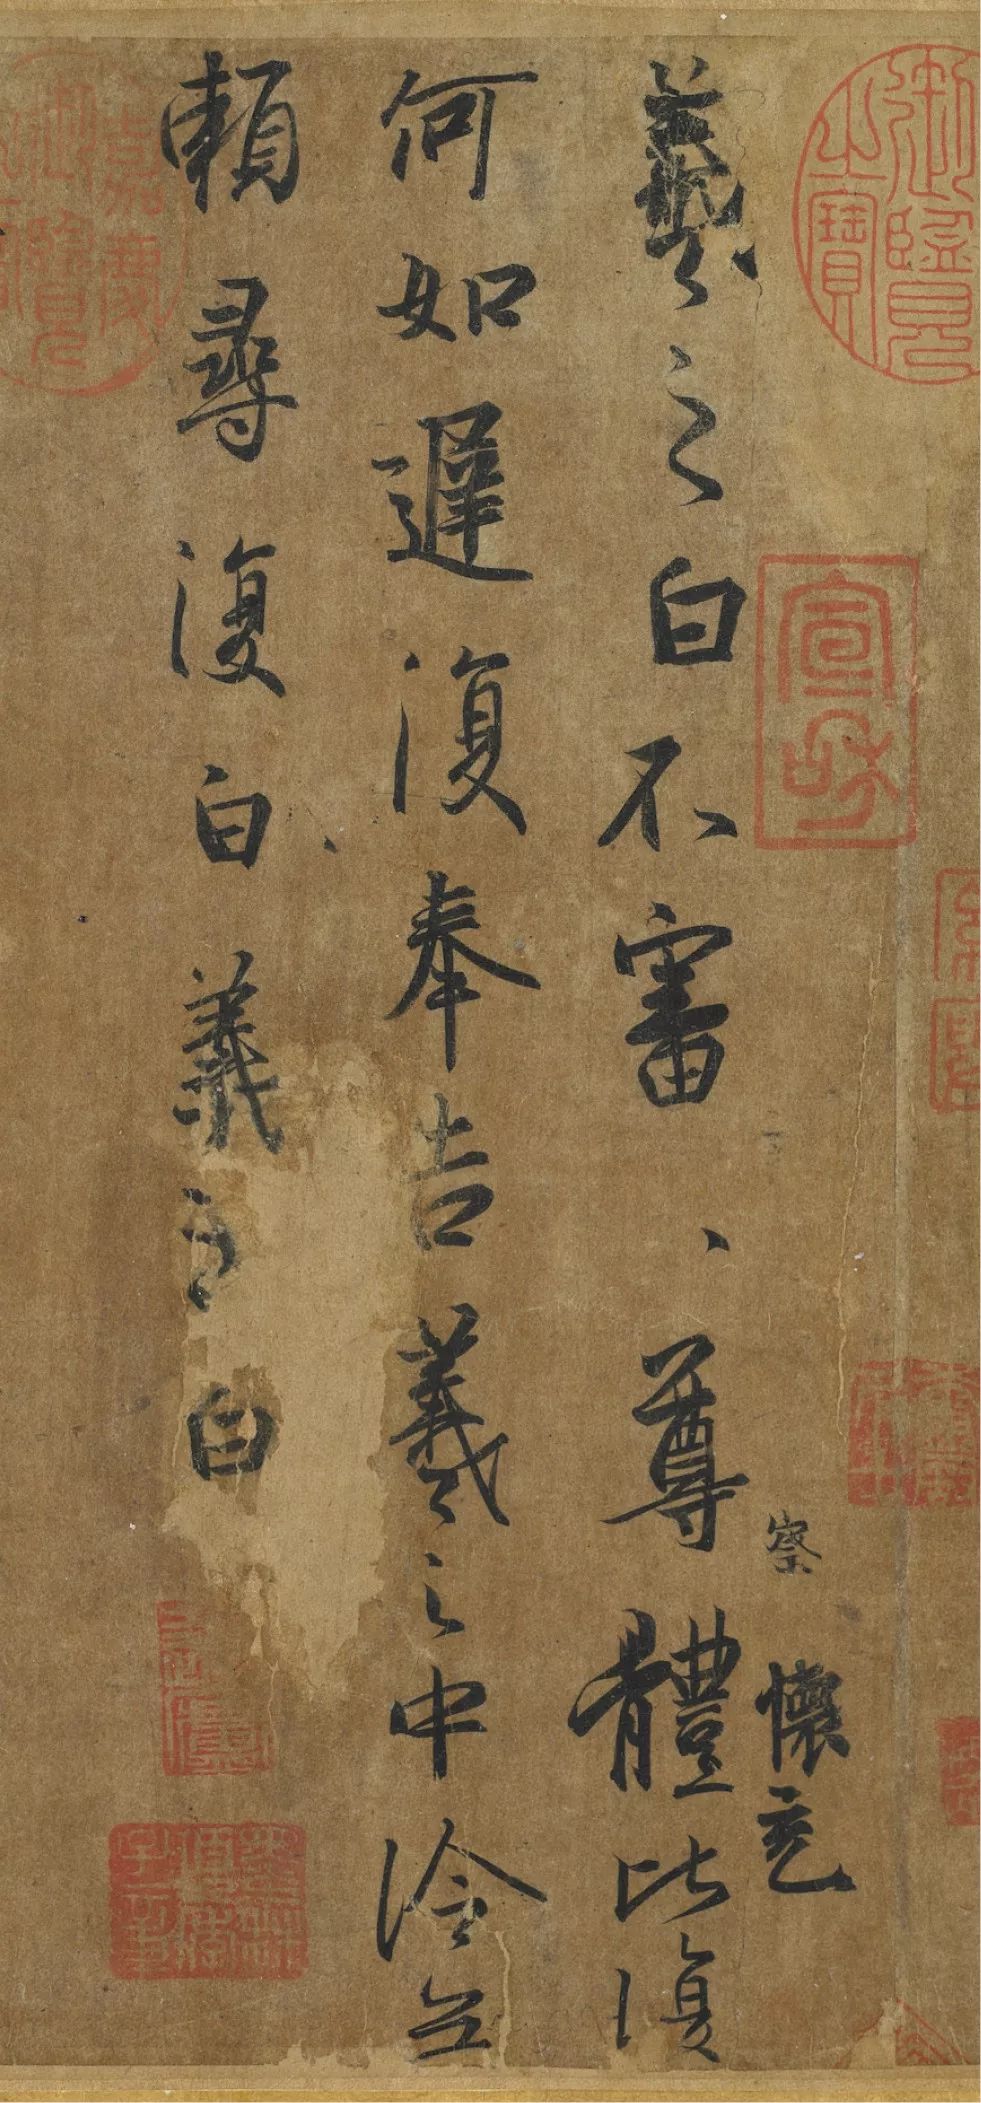 御覽
之寶
宣和
察 懷充
羲之白不審、尊體比復
何如遲復奉告羲之中冷無
賴尋復白羲之白
嘉慶
御覽